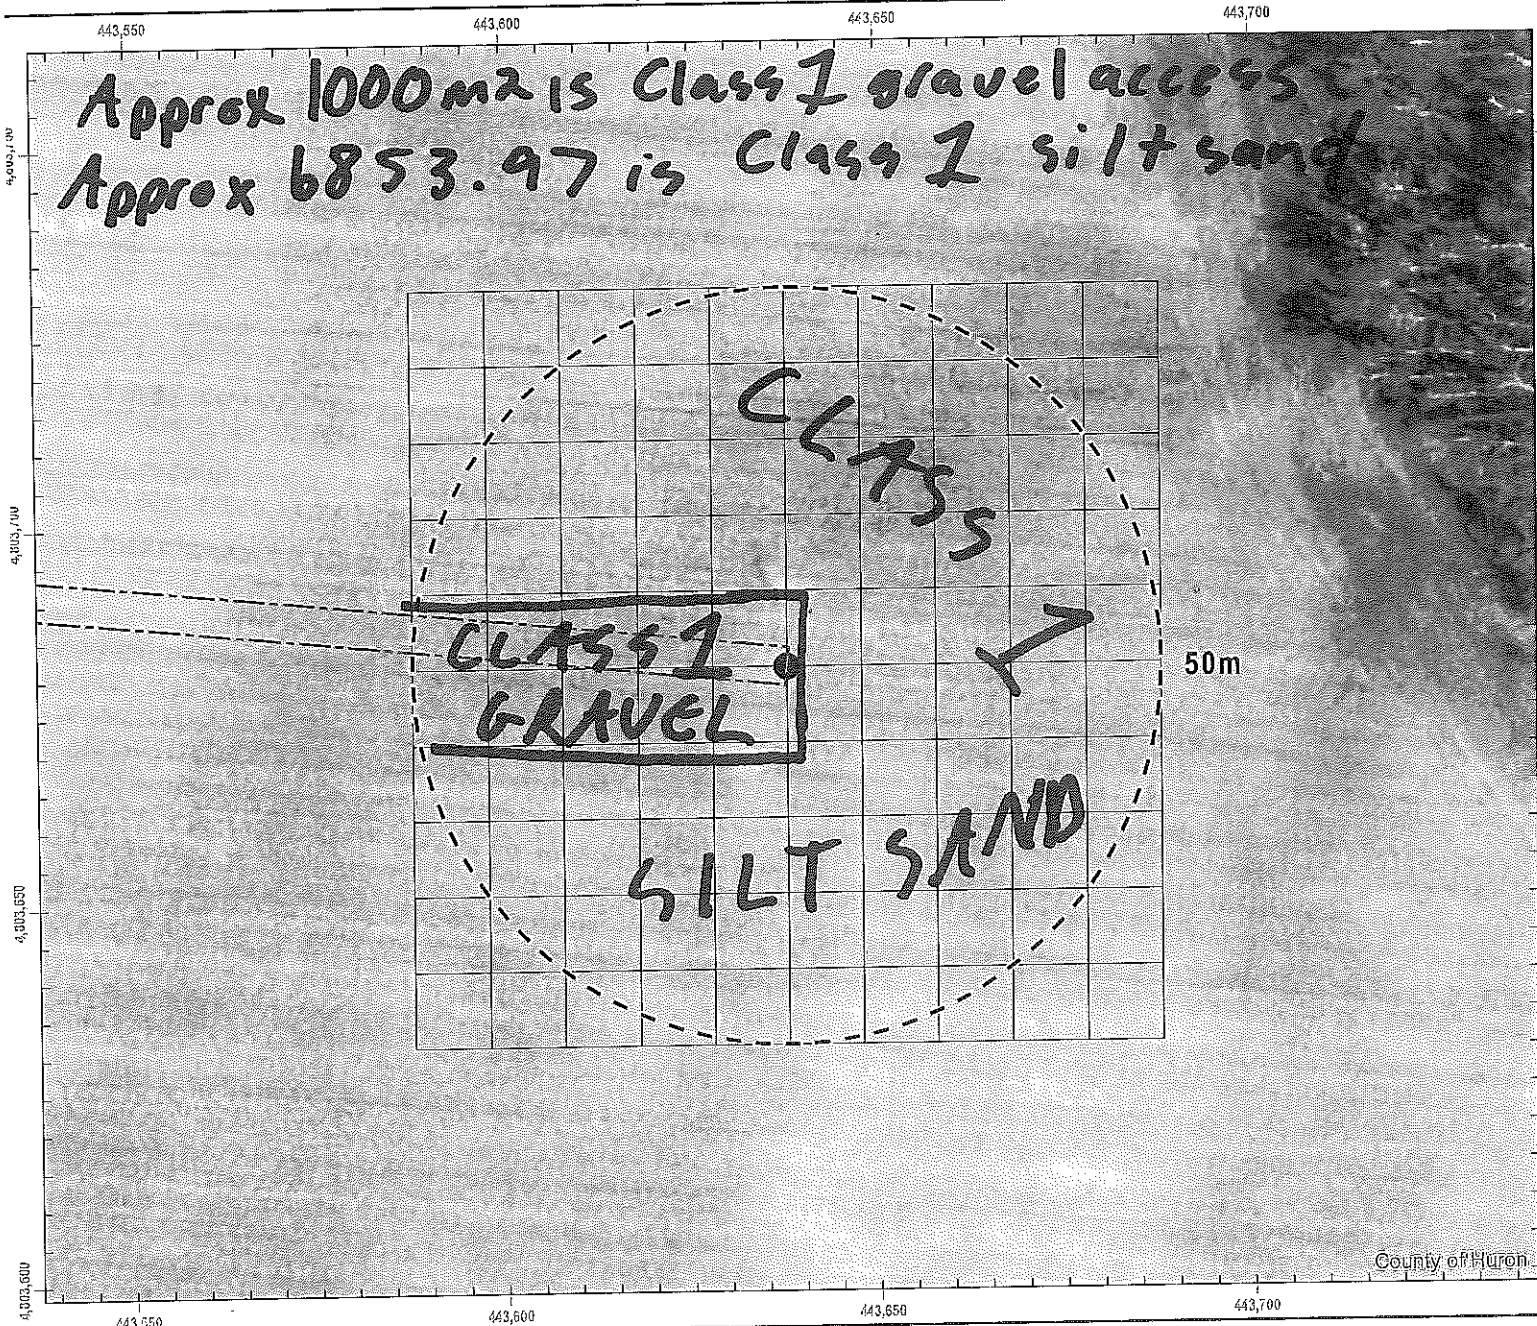 443,550 443,600 443,650 443,700
Approx 1000m2 is Class 1 gravel access
Approx 6853.97 is Class 1 silt sand
4,803,700
4,803,650
4,803,600
CLASS
1
CLASS 1
GRAVEL
50m
SILT SAND
County of Huron
443,550 443,600 443,650 443,700